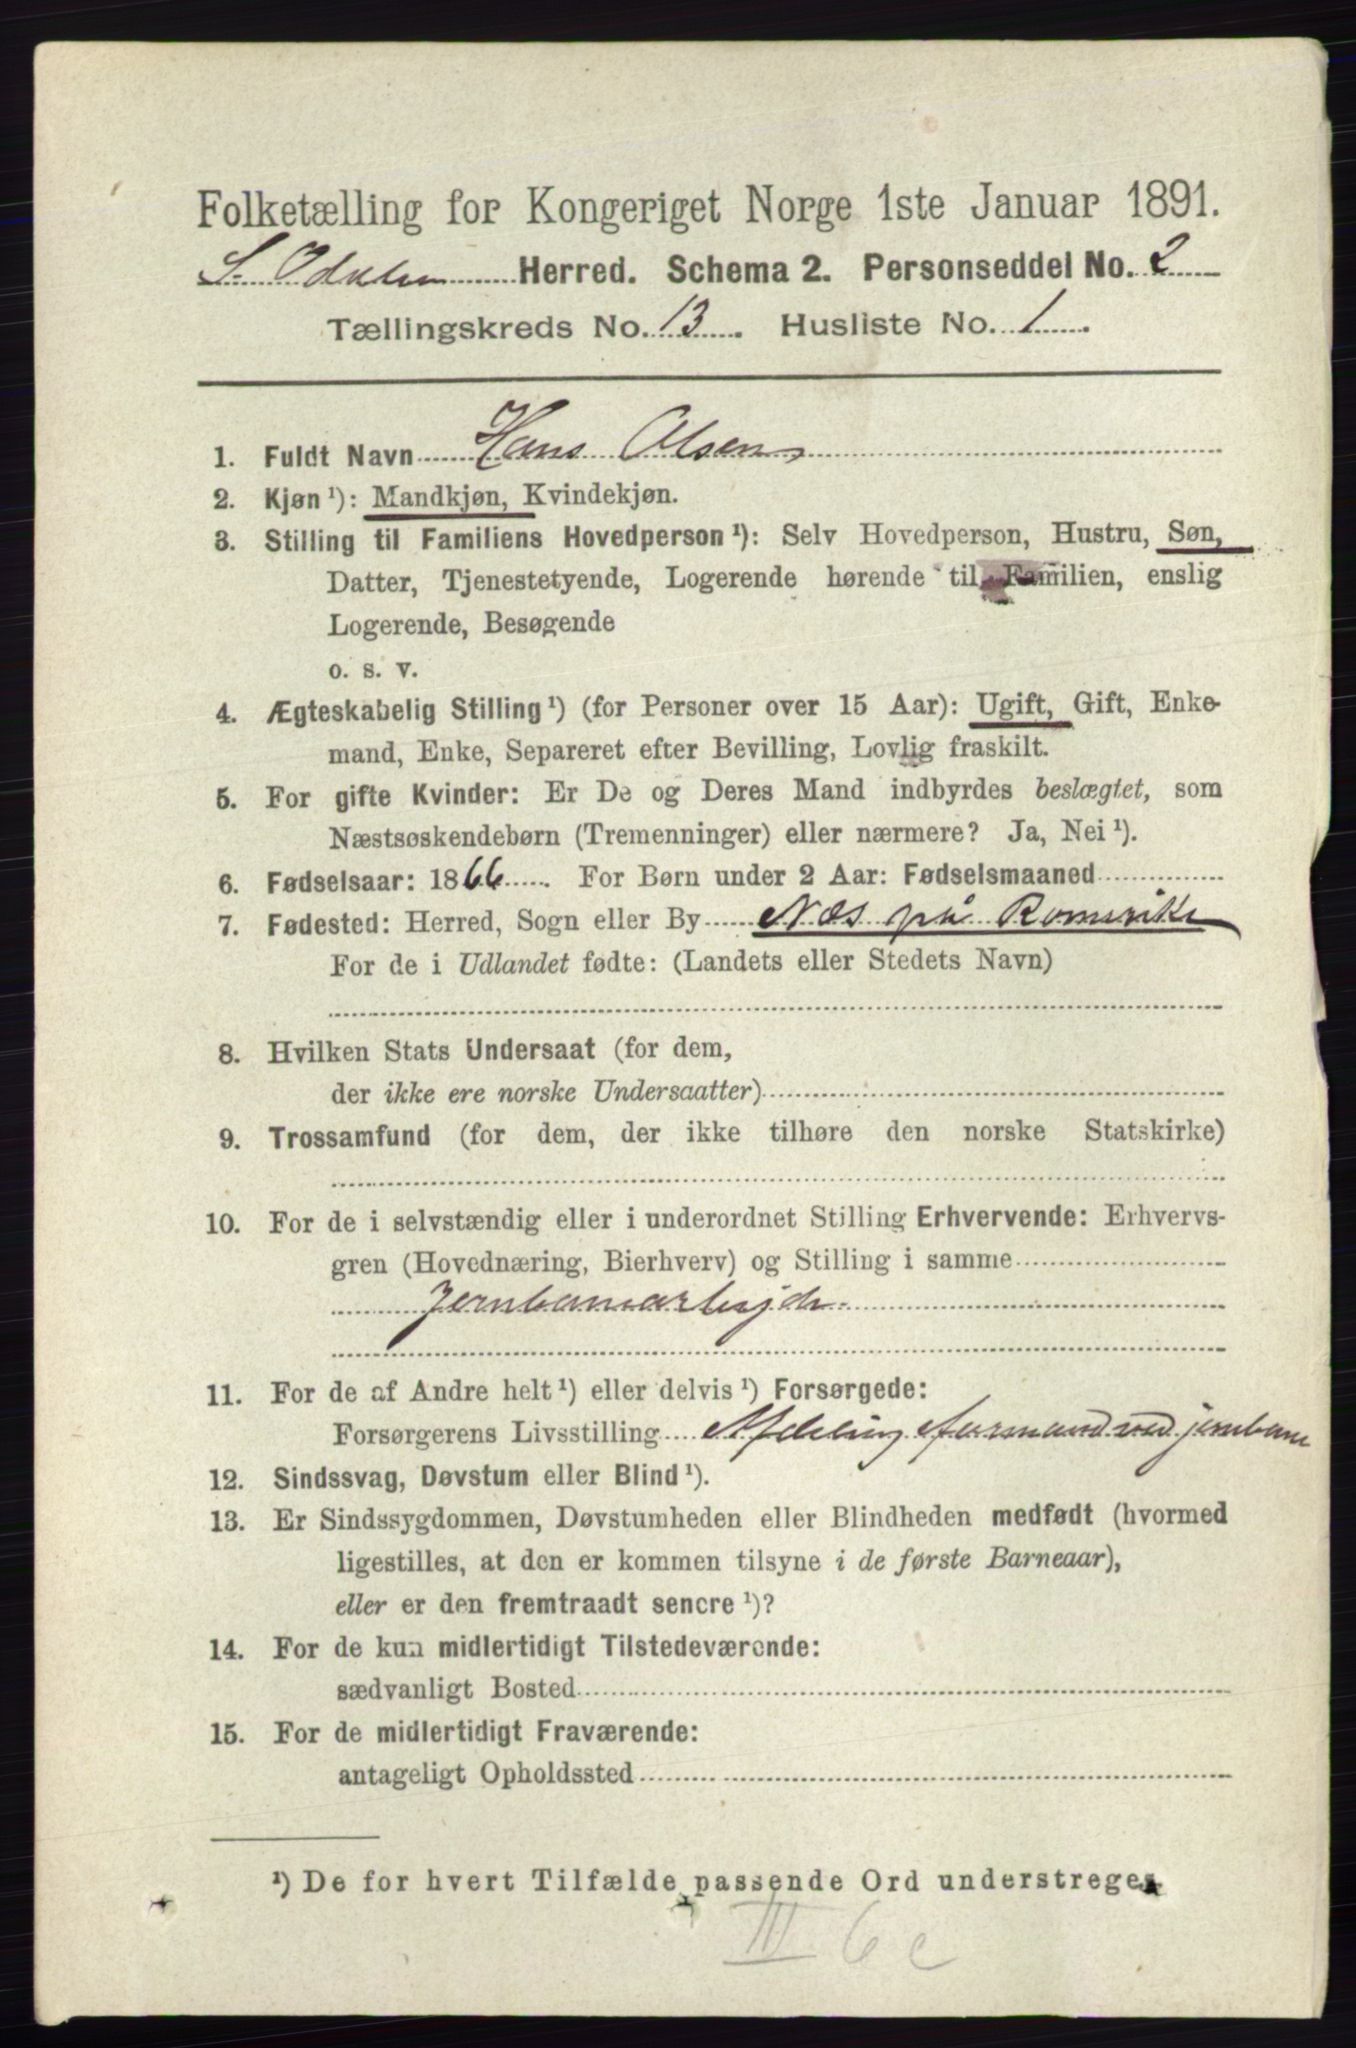 Folketælling for Kongeriget Norge 1ste Januar 1891.
S. Odalen Herred. Schema 2. Personseddel No. 2
Tællingskreds No. 13. Husliste No. 1.
1. Fuldt Navn Hans Olsen
2. Kjøn ¹): Mandkjøn, Kvindekjøn.
3. Stilling til Familiens Hovedperson ¹): Selv Hovedperson, Hustru, Søn,
Datter, Tjenestetyende, Logerende hørende til Familien, enslig
Logerende, Besøgende
o. s. v.
4. Ægteskabelig Stilling ¹) (for Personer over 15 Aar): Ugift, Gift, Enke-
mand, Enke, Separeret efter Bevilling, Lovlig fraskilt.
5. For gifte Kvinder: Er De og Deres Mand indbyrdes beslægtet, som
Næstsøskendebørn (Tremenninger) eller nærmere? Ja, Nei ¹).
6. Fødselsaar: 1866. For Børn under 2 Aar: Fødselsmaaned
7. Fødested: Herred, Sogn eller By Næs på Romerike
For de i Udlandet fødte: (Landets eller Stedets Navn)
8. Hvilken Stats Undersaat (for dem,
der ikke ere norske Undersaatter)
9. Trossamfund (for dem, der ikke tilhøre den norske Statskirke)
10. For de i selvstændig eller i underordnet Stilling Erhvervende: Erhvervs-
gren (Hovednæring, Bierhverv) og Stilling i samme
Jernbanearbejder
11. For de af Andre helt ¹) eller delvis ¹) Forsørgede:
Forsørgerens Livsstilling Afdeling formand ved jernbane
12. Sindssvag, Døvstum eller Blind ¹).
13. Er Sindssygdommen, Døvstumheden eller Blindheden medfødt (hvormed
ligestilles, at den er kommen tilsyne i de første Barneaar),
eller er den fremtraadt senere ¹)?
14. For de kun midlertidigt Tilstedeværende:
sædvanligt Bosted
15. For de midlertidigt Fraværende:
antageligt Opholdssted
¹) De for hvert Tilfælde passende Ord understreges
III 6 c